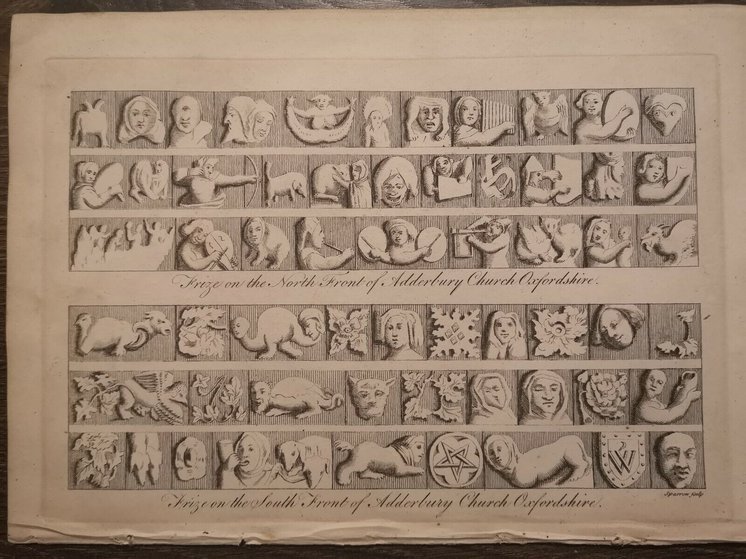 Frize on the North Front of Adderbury Church Oxfordshire.
W
Sparrow sculp
Frize on the South Front of Adderbury Church Oxfordshire.